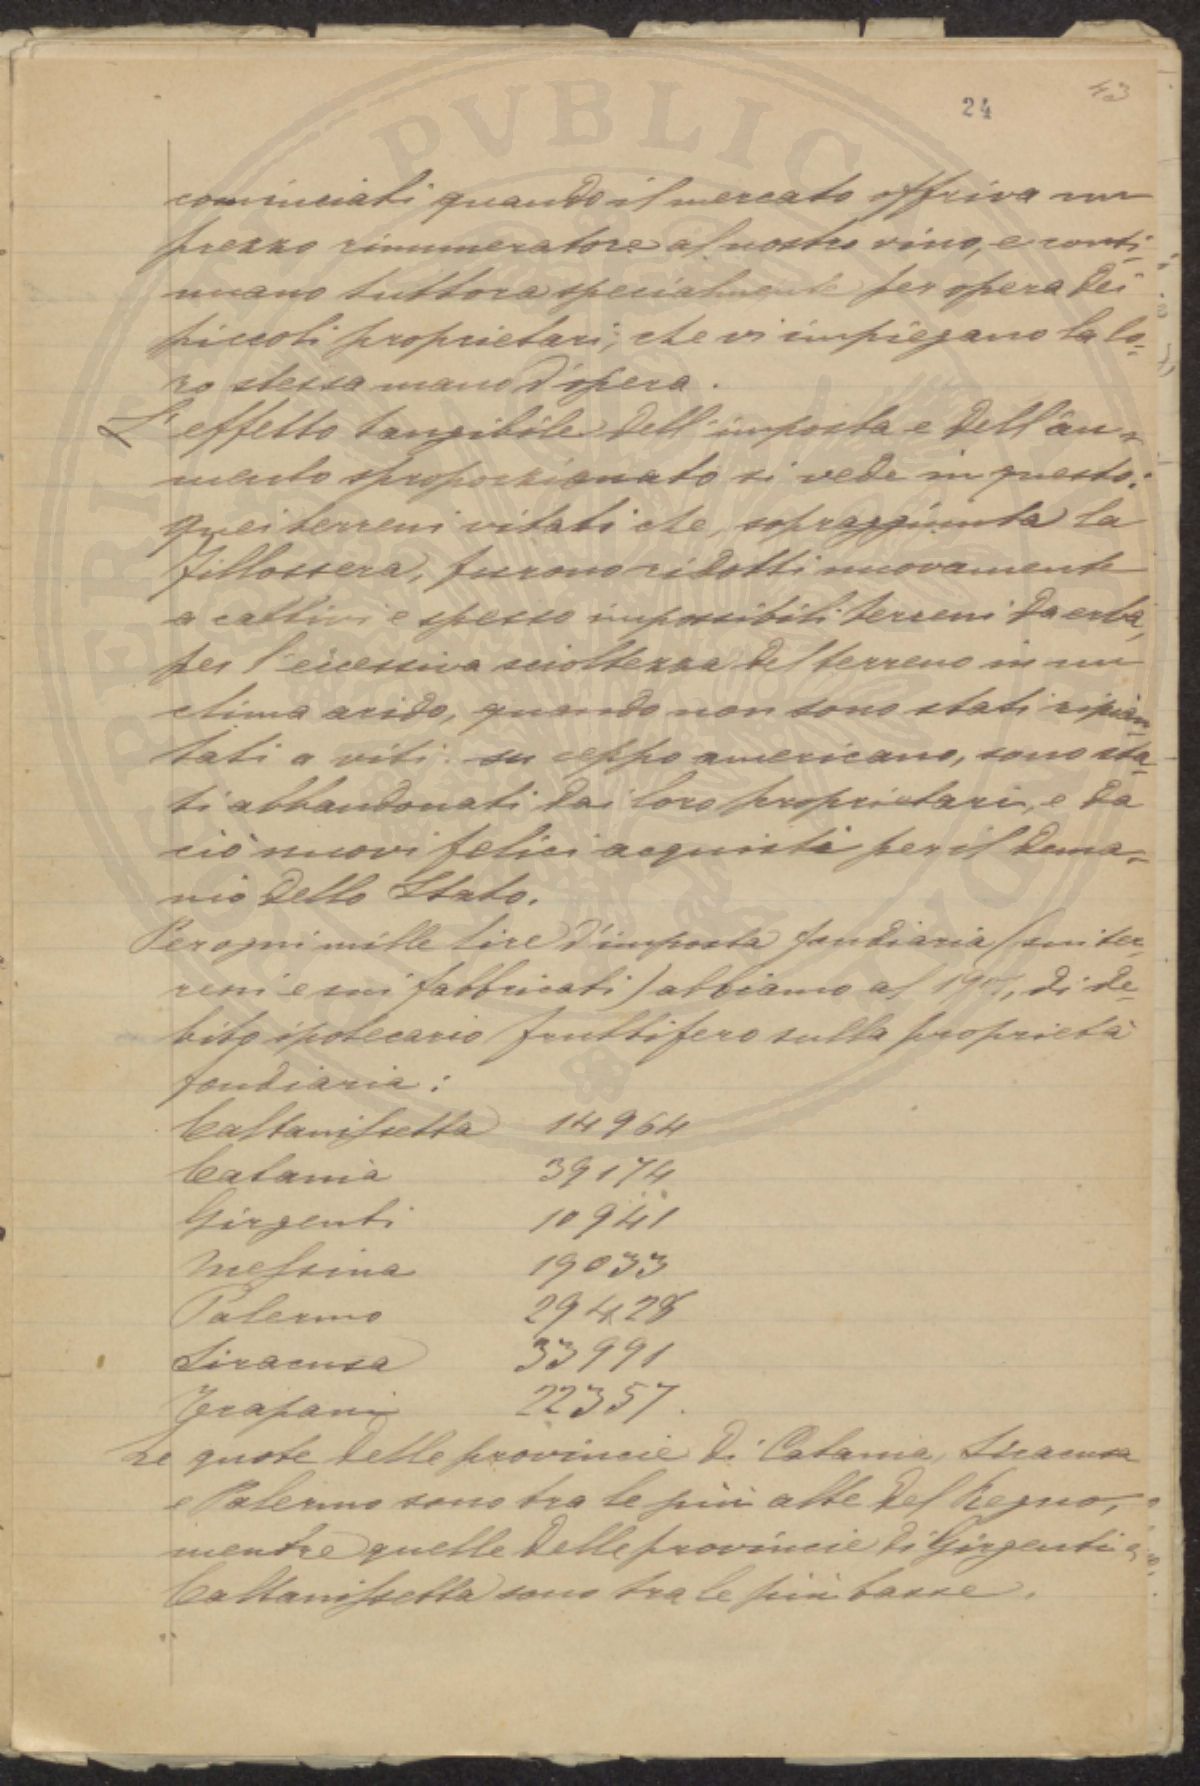 43
24
cominciati quando il mercato offriva un
prezzo rinumeratore al nostro vino, e conti-
nuano tuttora specialmente per opera dei
piccoli proprietari, che vi impiegano la lo-
ro stessa mano d'opera.
L'effetto tangibile dell'imposta e dell'au-
mento sproporzionato si vede in questo:
quei terreni vitati che, sopraggiunta la
fillossera, furono ridotti nuovamente
a cattivi e spesso impossibili terreni da erba,
per l'eccessiva scioltezza del terreno in un
clima arido, quando non sono stati ripian-
tati a viti su ceppo americano, sono sta-
ti abbandonati dai loro proprietari, e da
ciò nuovi felici acquisti per il dema-
nio dello Stato.
Per ogni mille lire d'imposta fondiaria (sui ter-
reni e sui fabbricati) abbiamo al di de-
bito ipotecario fruttifero sulla proprietà
fondiaria:
Caltanissetta 14964
Catania 39174
Girgenti 10941
Messina 19033
Palermo 29428
Siracusa 33991
Trapani 22357.
Le quote delle provincie di Catania, Siracusa
e Palermo sono tra le più alte del Regno,
mentre quelle delle provincie di Girgenti e
Caltanissetta sono tra le più basse.
PERITAL PVBLIC